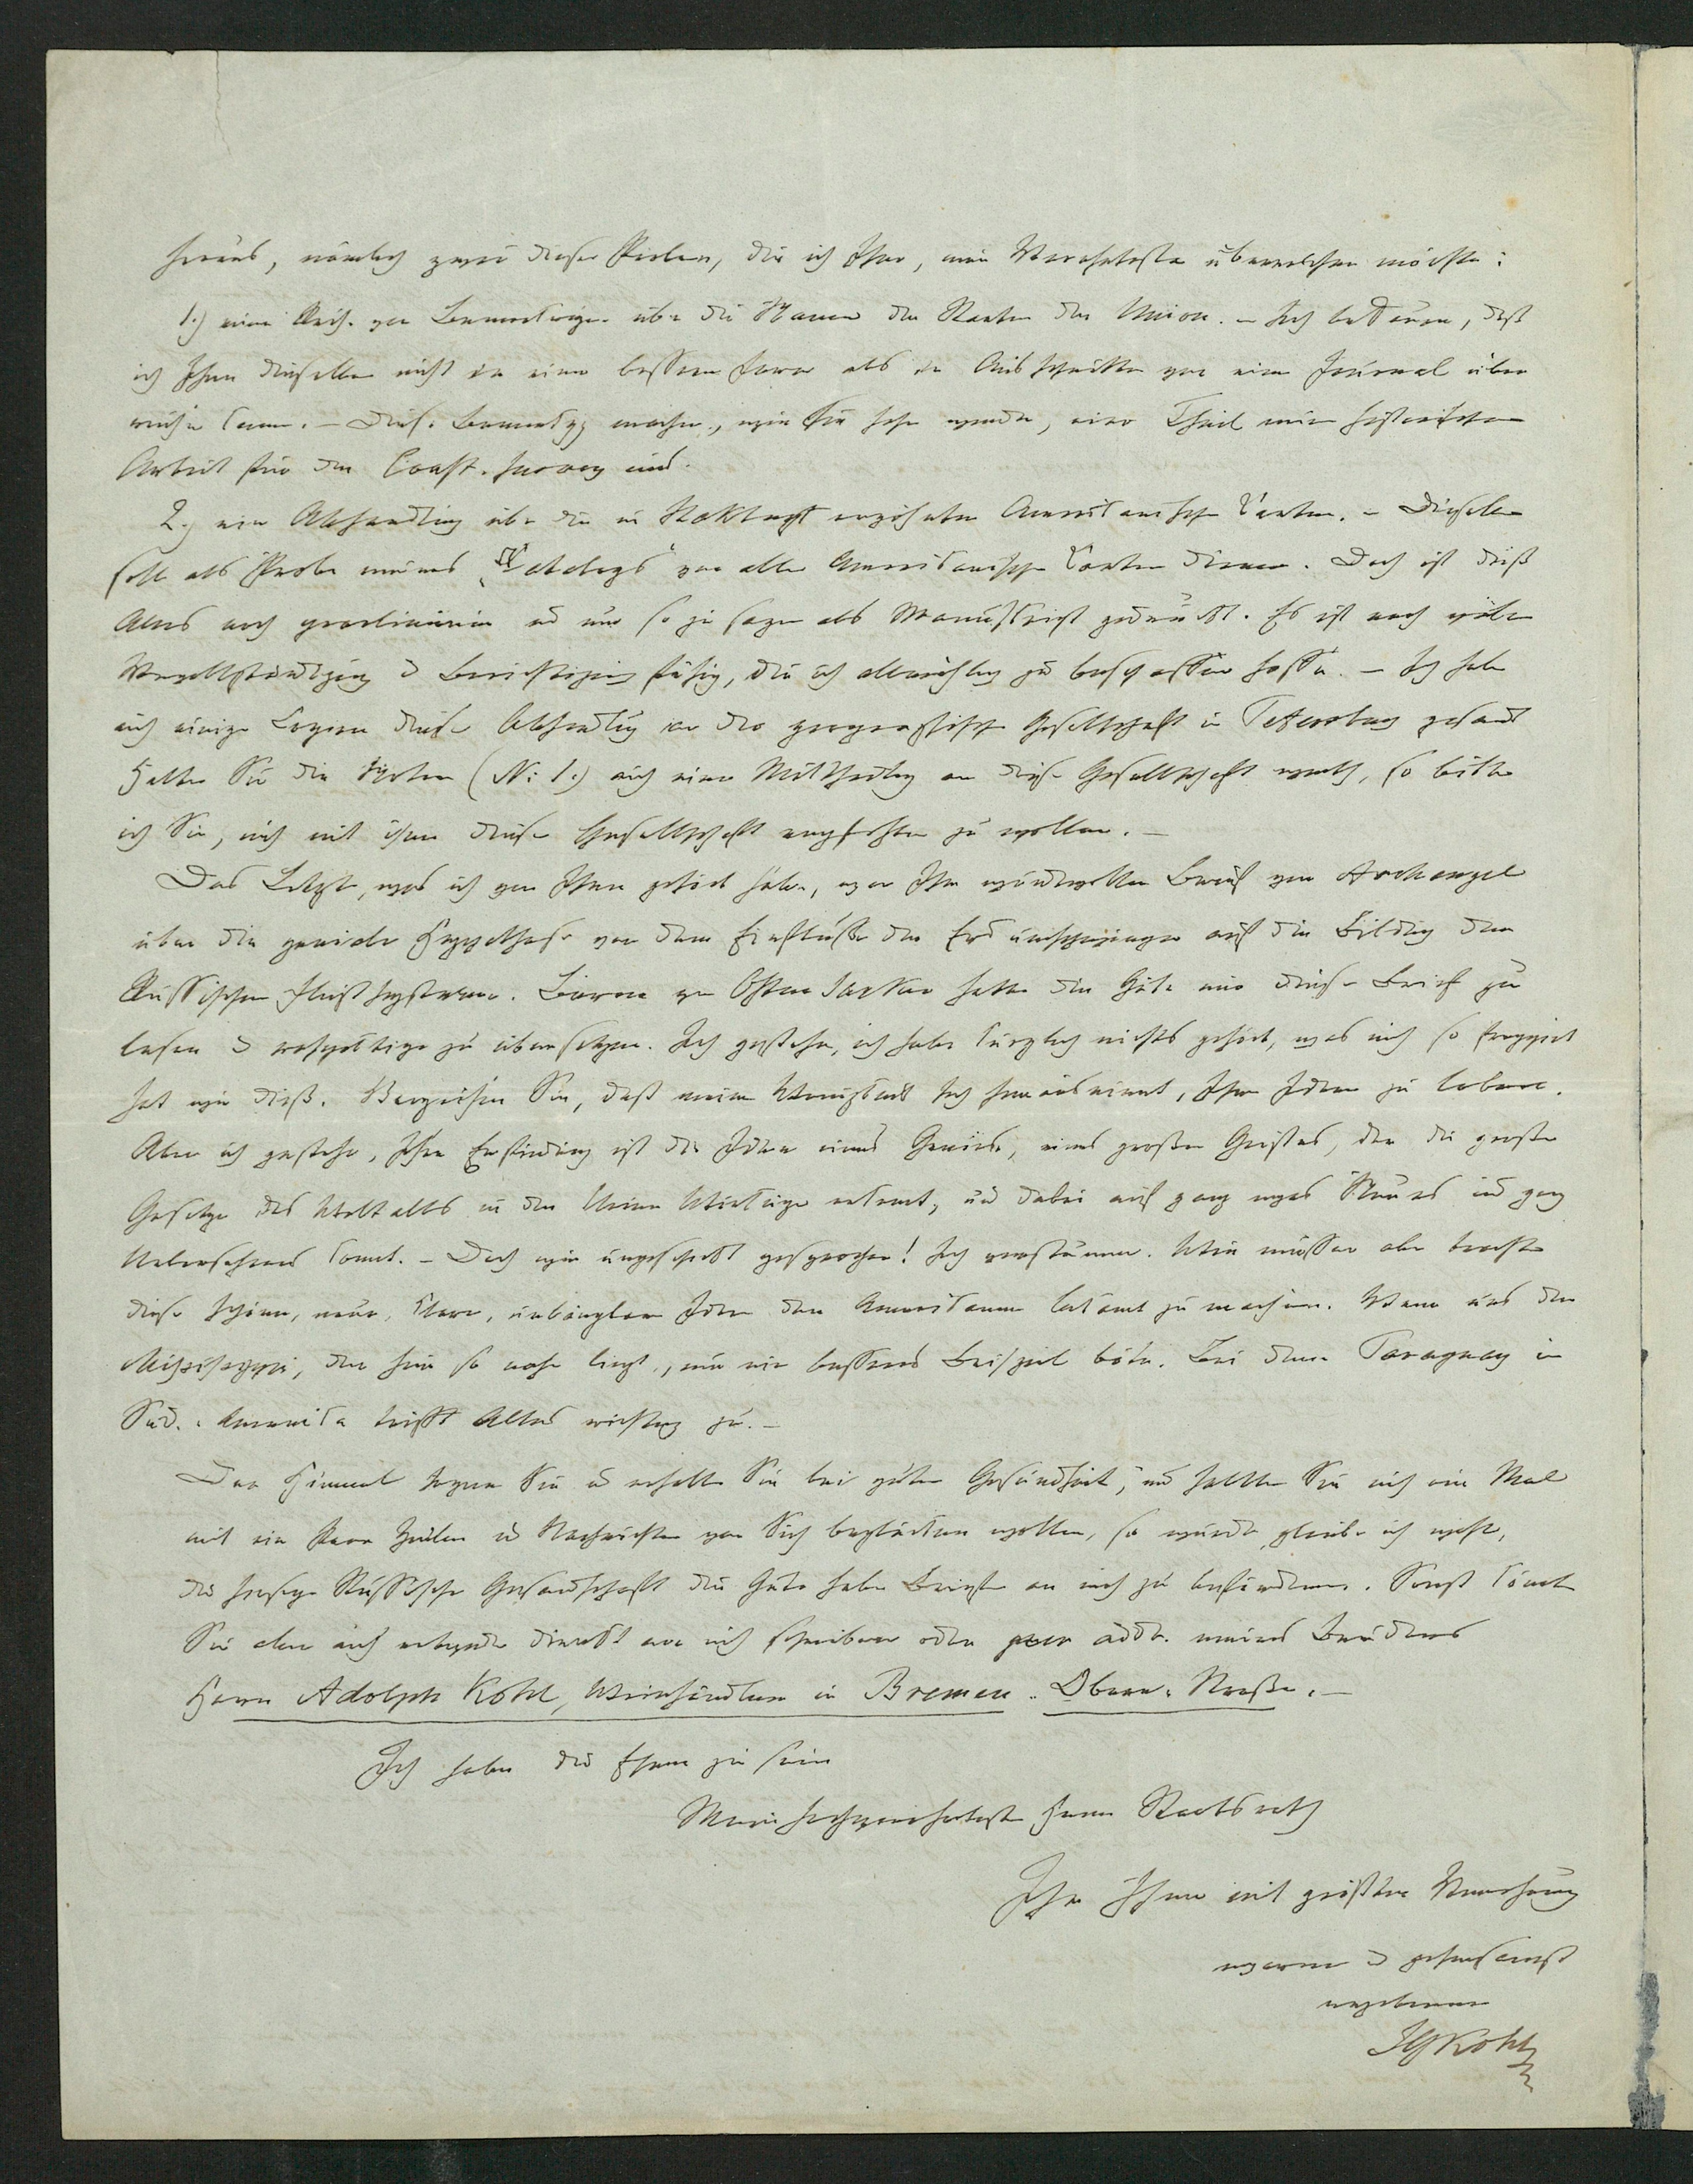 heraus, nämlich zwei dieser Piecen, die ich Ihnen, mein Verehrtester überreichen möchte:
1.) eine Reihe von Bemerkungen über die Namen der Staaten der Union. – Ich bedaure, daß
ich Ihnen dieselben nicht in einer besseren Form als in Ausschnitten von einem Journal über
reichen kann. – Diese Bemerkung machen, wie Sie sehen werden, einen Theil meiner historischen
Arbeit für den Coast-Survey aus.
2.) eine Abhandlung über die in Hakluyt erwähnten Amerikanischen Karten. – Dieselbe
soll als Probe meines „Catalogs“ von alten Amerikanischen Karten dienen. Doch ist dieß
Alles noch präliminair und nur so zu sagen als Manuskript gedruckt. Es ist noch vieler
Vervollständigung u Berichtigung fähig, die ich allmählig zu beschaffen hoffe. – Ich habe
auch einige Copien dieser Abhandlung an die geographische Gesellschaft in Petersburg gesandt
Halten Sie die Noten (N: 1.) auch einer Mittheilung an diese Gesellschaft werth, so bitte
ich Sie, mich mit ihnen dieser Gesellschaft empfehlen zu wollen. –
Das Letzte, was ich von Ihnen gehört habe, war Ihr wundervoller Brief von Archangel
über die geniale Hypothese von dem Einflusse der Erdumschwingungen auf die Bildung der
Russischen Flußsysteme. Baron von Osten Sacken hatte die Güte mir diesen Brief zu
lesen u zu übersetzen. Ich gestehe, ich habe kürzlich nichts gehört, was mich so frappirt
hat wie dieß. Verzeihen Sie, daß meine Wenigkeit sich herausnimmt, Ihre Ideen zu loben.
Aber ich gestehe, Ihre Erfindung ist die Idee eines Genies, eines großen Geistes, der die großen
Gesetze des Weltalls in den kleinen Wirkungen erkennt, und dabei auf ganz was Neues und ganz
Uebersehenes kommt. – Doch wie ungeschickt gesprochen! Ich verstumme. Wir müssen aber trachten
diese schöne, neue, klare, Idee den Amerikanern bekannt zu machen. Wenn uns der
Missisippi, der hier so nahe liegt, nur ein besseres Beispiel böte. Bei dem Paraguay in
Süd-Amerika trifft Alles richtig zu. –
Der Himmel segne Sie u erhalte Sie bei guter Gesundheit, und sollten Sie mich ein Mal
mit ein Paar Zeilen u Nachrichten von Sich beglücken wollen, so würde, glaube ich wohl,
die hiesige Russische Gesandschaft die Güte haben Briefe an mich zu befördern. Sonst könnten
Sie aber auch direkt an mich schreiben oder per addr. meines Bruders
Herrn Adolph Kohl, Weinhändler in Bremen. Obern-Straße. –
Ich habe die Ehre zu sein
Mein hochverehrtester Herr Staatsrath
Ihr Ihnen mit größter Verehrung
warm u gehorsamst
ergebener
JGKohl